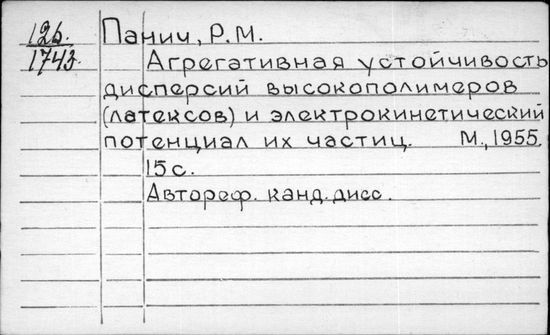 126.
1743.
Панич, Р.М.
Агрегативная устойчивость
дисперсий высокополимеров
(латексов) и электрокинетический
потенциал их частиц. М., 1955.
15 с.
Автореф. канд. дисс.